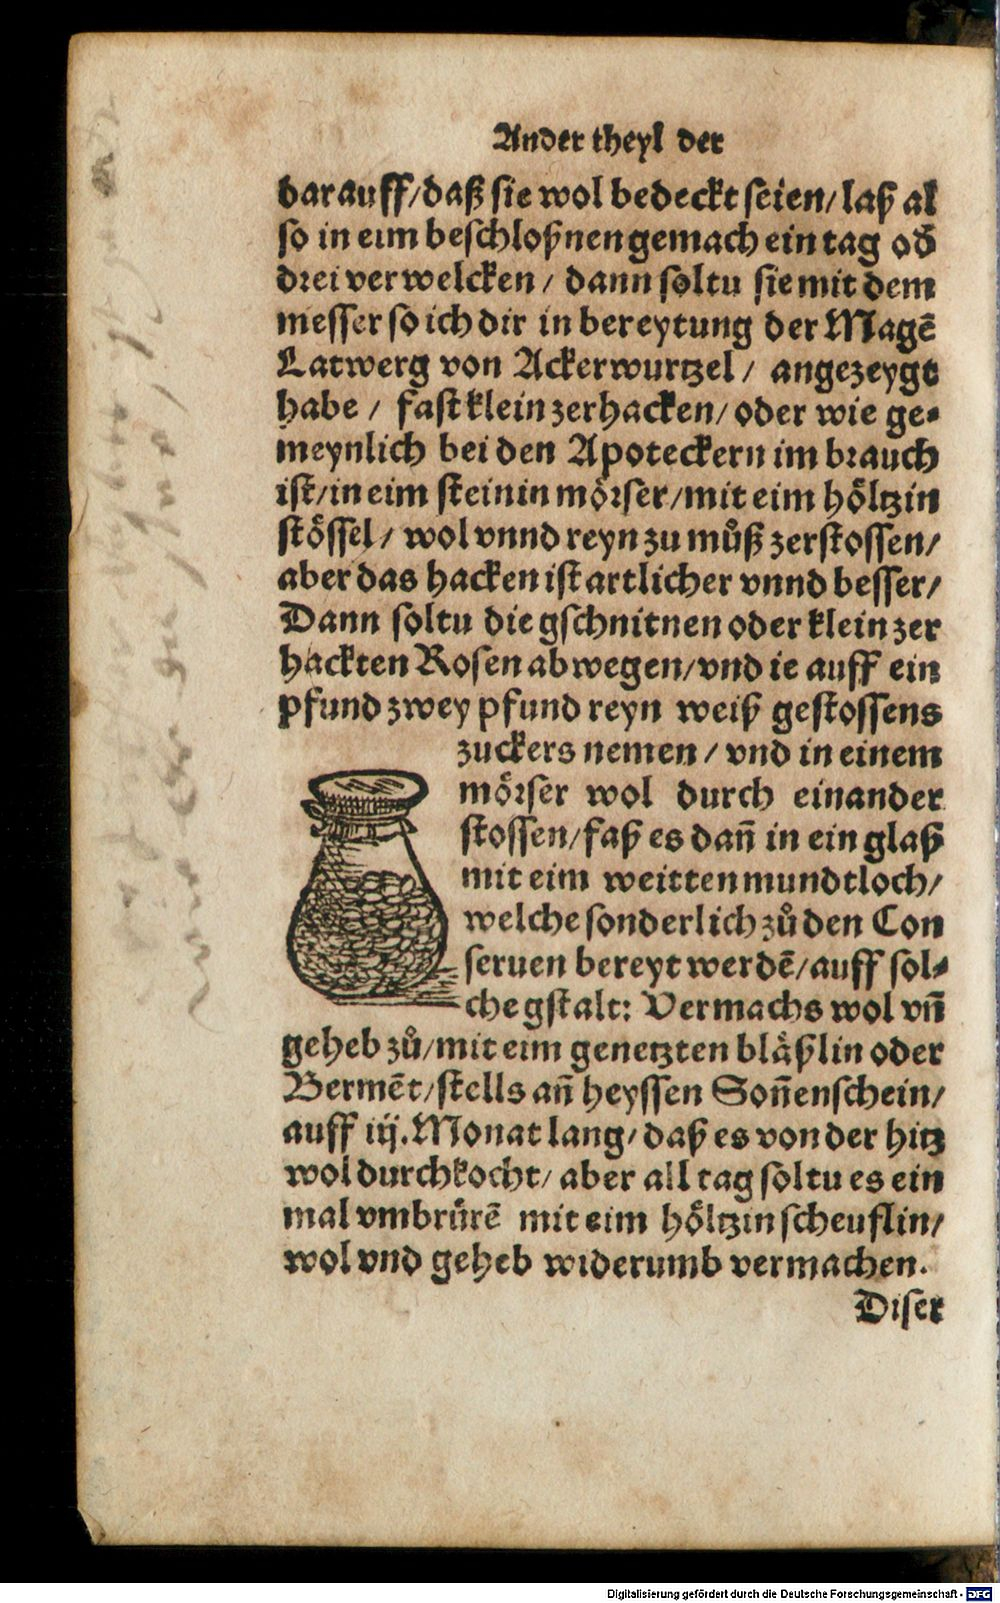 Ander theyl der
darauff/daß sie wol bedeckt seien/ laß al
so in eim beschloßnen gemach ein tag od̄
drei verwelcken / dann soltu sie mit dem
messer so ich dir in bereytung der Magē
Latwerg von Ackerwurtzel / angezeygt
habe / fast klein zerhacken/ oder wie ge⸗
meynlich bei den Apoteckern im brauch
ist/in eim steinin mörser/mit eim höltzin
stössel/ wol vnnd reyn zu můß zerstossen/
aber das hacken ist artlicher vnnd besser/
Dann soltu die gschnitnen oder klein zer
hackten Rosen abwegen/vnd ie auff ein
pfund zwey pfund reyn weiß gestossens
zuckers nemen / vnd in einem
mörser wol durch einander
stossen/faß es dañ in ein glaß
mit eim weitten mundtloch/
welche sonderlich zů den Con
seruen bereyt werdē/auff sol⸗
che gstalt: Vermachs wol vñ
geheb zů/mit eim genetzten bläßlin oder
Bermēt/stells añ heyssen Soñenschein/
auff iij. Monat lang/ daß es von der hitz
wol durchkocht/ aber all tag soltu es ein
mal vmbrürē mit eim höltzin scheuflin/
wol vnd geheb widerumb vermachen.
Diser
Digitalisierung gefördert durch die Deutsche Forschungsgemeinschaft - DFG